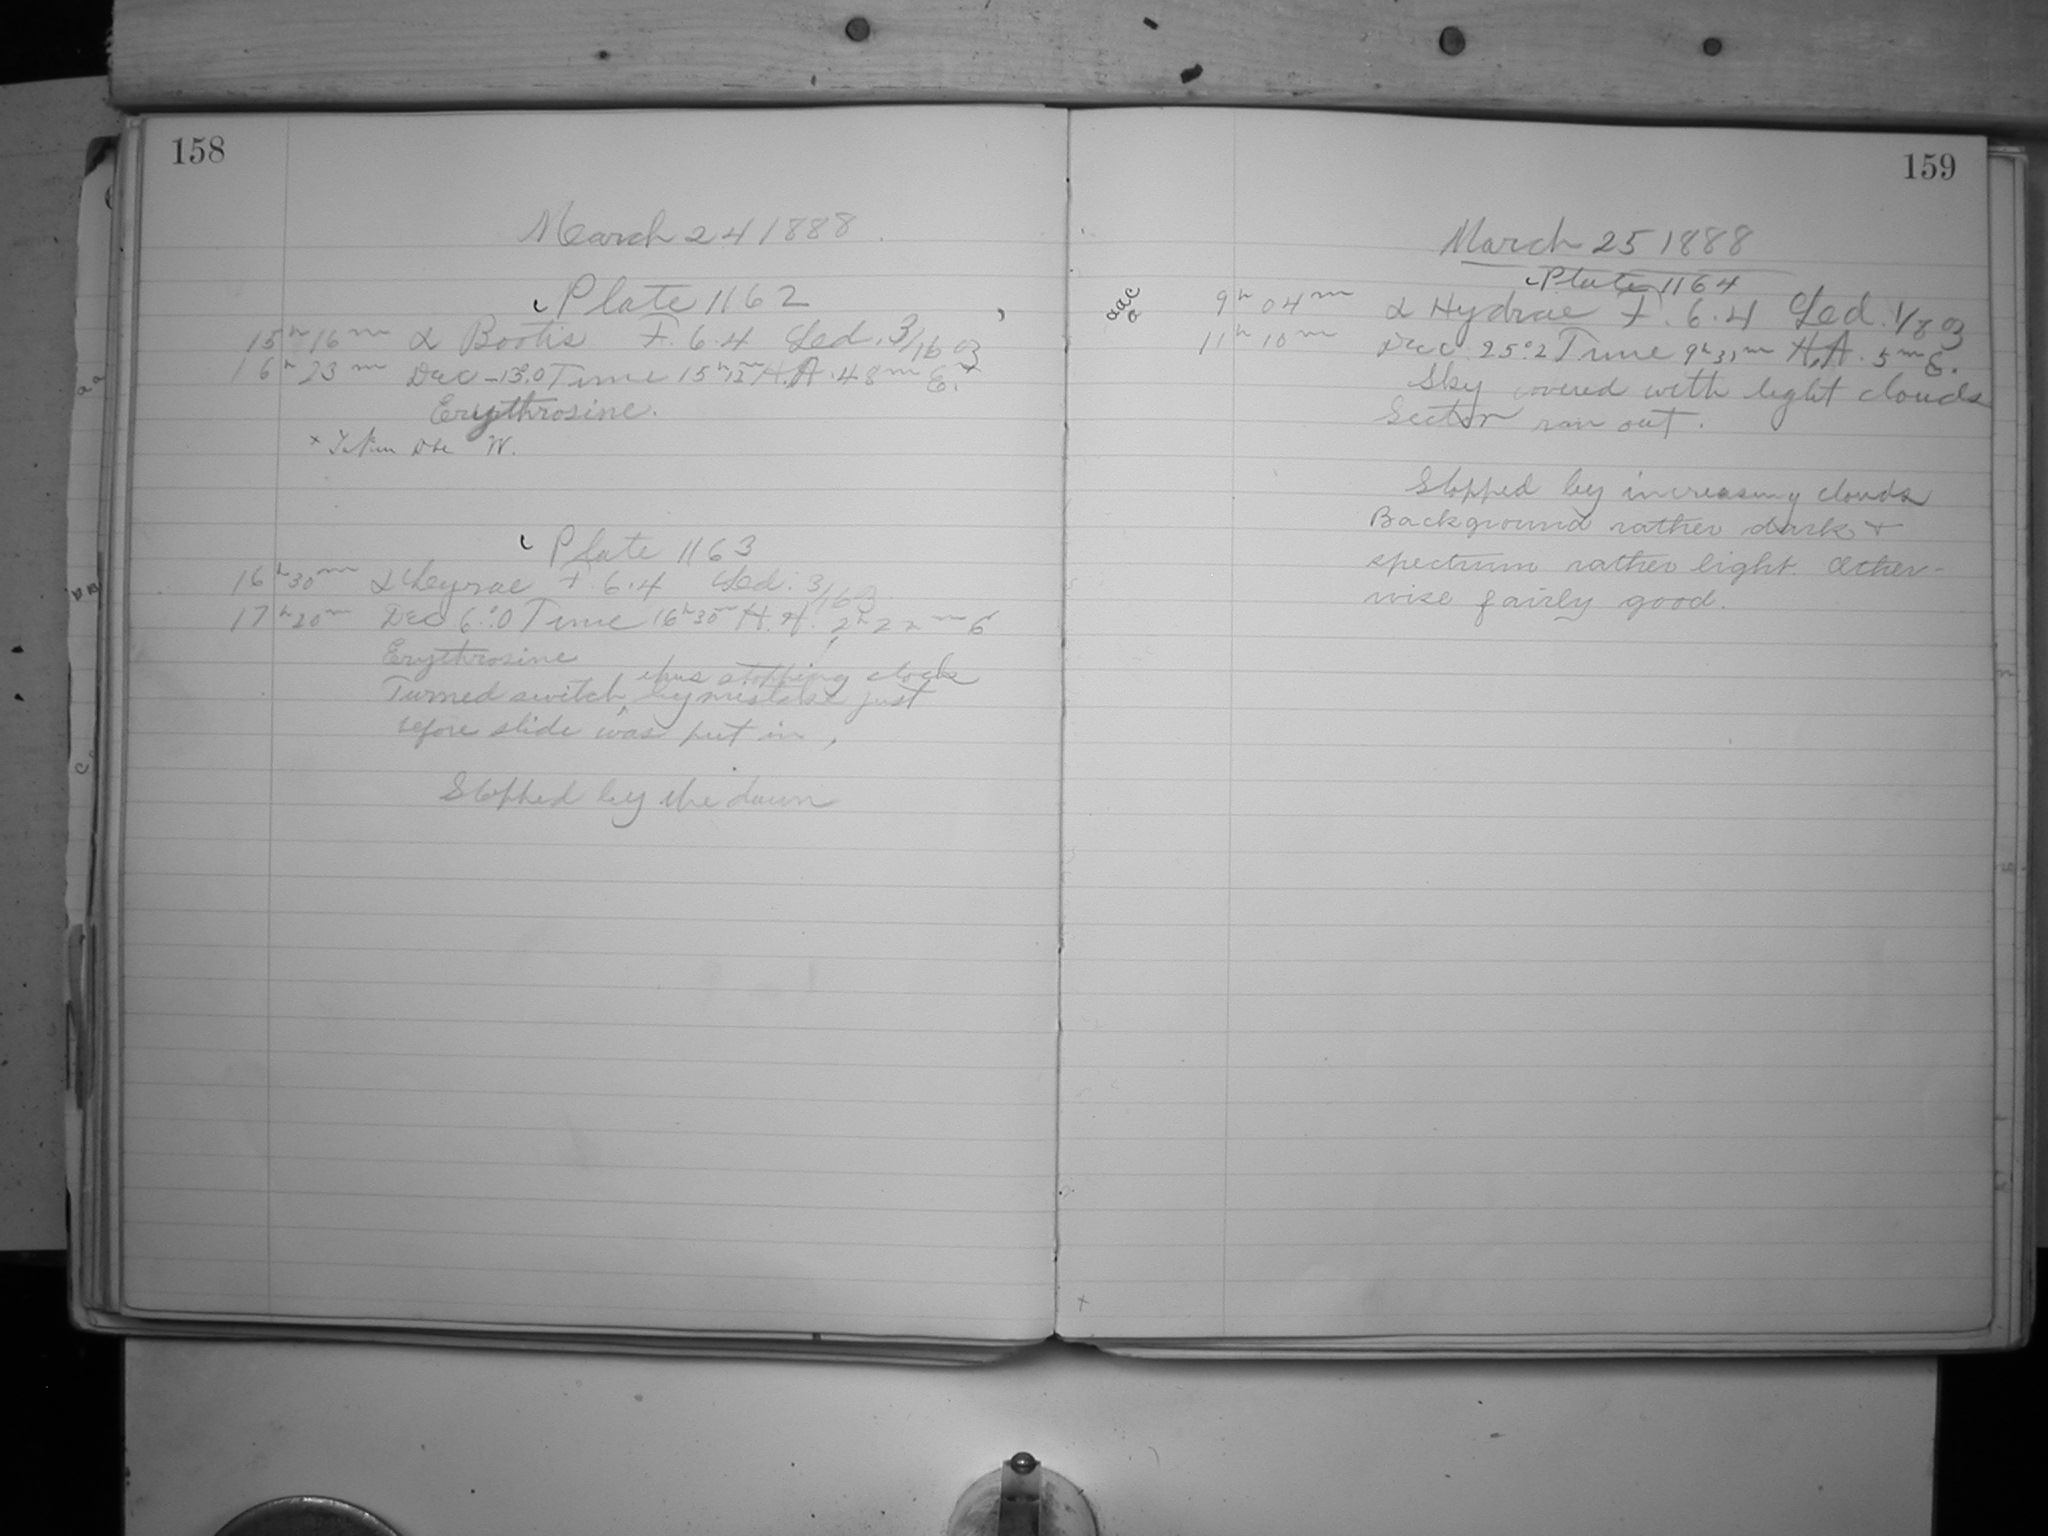 158
March 24 1888
Plate 1162
15h 16m α Bootis F. 6.4 Led. 3/16 03
16h 23m Dec -13.°0 Time 15h 12m H.A. 48m E.x
Erythrosine.
x Taken W.
Plate 1163
16h 30m α Lyrae F. 6.4 Led. 3/16 3
17h 20m Dec 6.°0 Time 16h 30m H.A. 2h 22m E
Erythrosine
thus stopping clock
Turned switch ^ by mistake just
before slide was put in,
Stopped by the dawn
159
March 25 1888
Plate 1164
aac
a
9h 04m α Hydrae F. 6.4 Led. 1/8 03
11h 10m Dec. 25.°2 Time 9h 31m H.A. 5m E.
Sky covered with light clouds
Sector ran out.
Stopped by increasing clouds
Background rather dark +
spectrum rather light. Other-
wise fairly good.